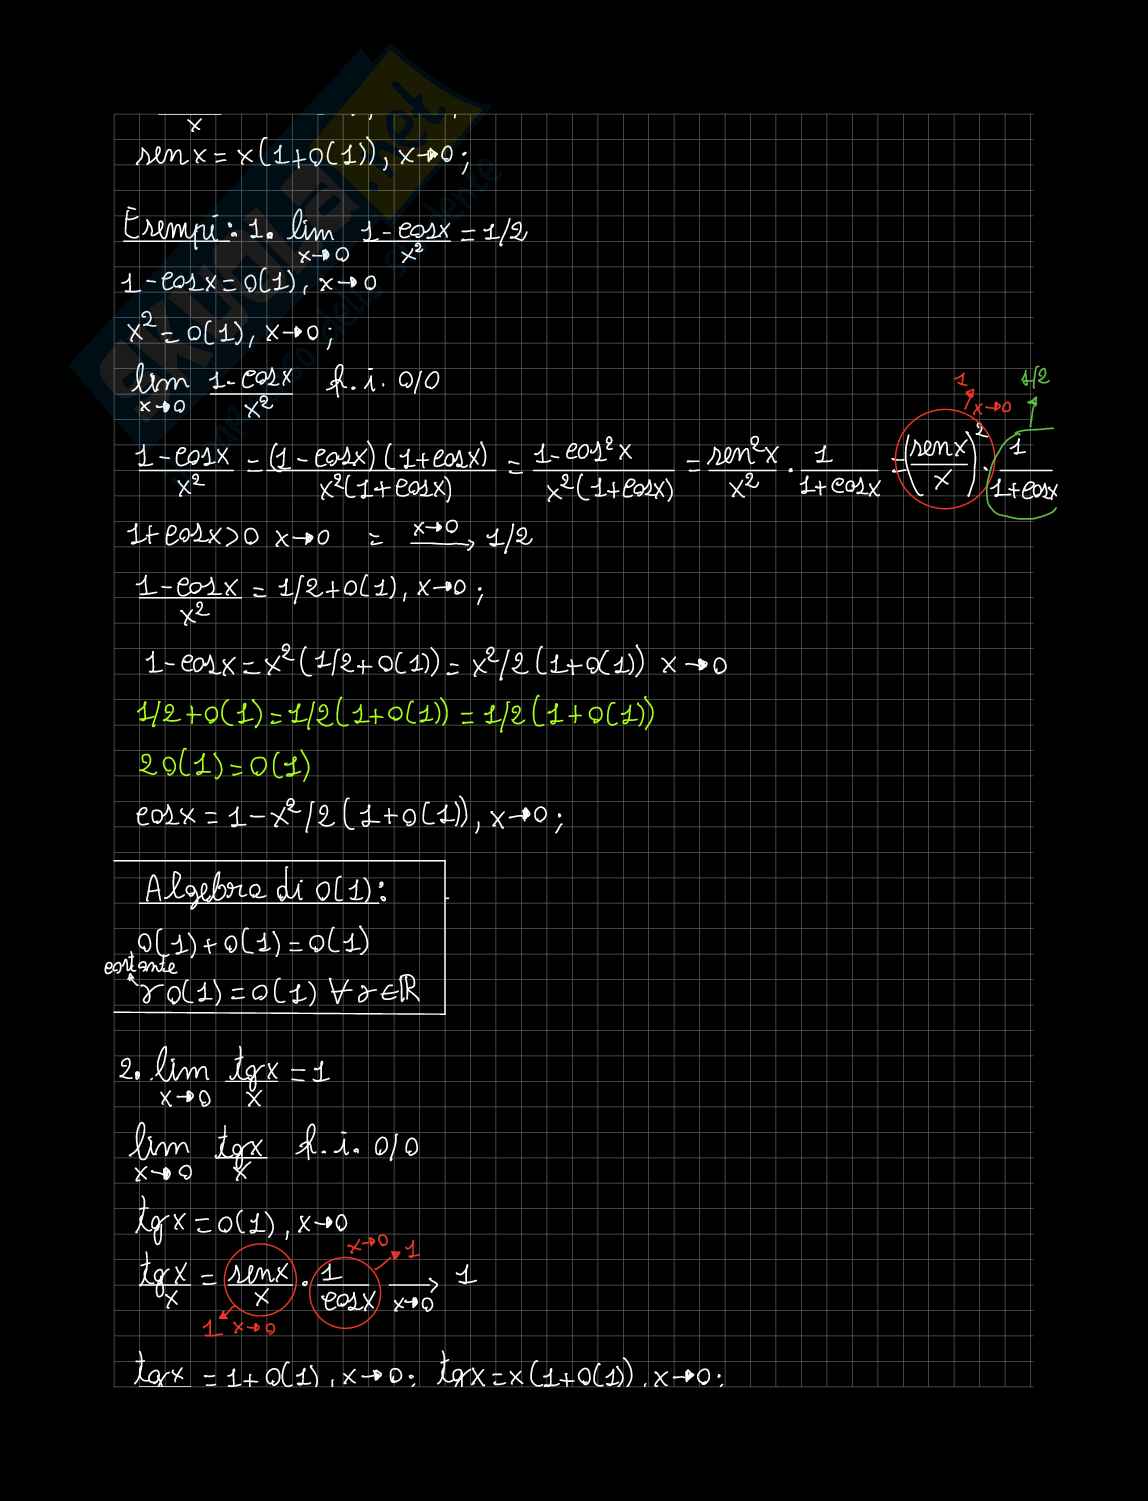 x
sen x = x(1+o(1)), x→0;
Esempi: 1. lim x→0 1-cosx/x² = 1/2
1-cosx = o(1), x→0
x² = o(1), x→0;
lim x→0 1-cosx/x² f.i. 0/0
1 x→0 1/2
1-cosx/x² = (1-cosx)(1+cosx)/x²(1+cosx) = 1-cos²x/x²(1+cosx) = sen²x/x² · 1/1+cosx = (senx/x)² · 1/1+cosx
1+cosx>0 x→0 = x→0→ 1/2
1-cosx/x² = 1/2+o(1), x→0;
1-cosx = x²(1/2+o(1)) = x²/2(1+o(1)) x→0
1/2+o(1) = 1/2(1+o(1)) = 1/2(1+o(1))
2o(1) = o(1)
cosx = 1-x²/2(1+o(1)), x→0;
Algebra di o(1):
o(1)+o(1) = o(1)
costante
γo(1) = o(1) ∀γ∈ℝ
2. lim x→0 tgx/x = 1
lim x→0 tgx/x f.i. 0/0
tgx = o(1), x→0
x→0 1
tgx/x = senx/x · 1/cosx →x→0 1
1 x→0
tgx = 1+o(1), x→0; tgx = x(1+o(1)), x→0;